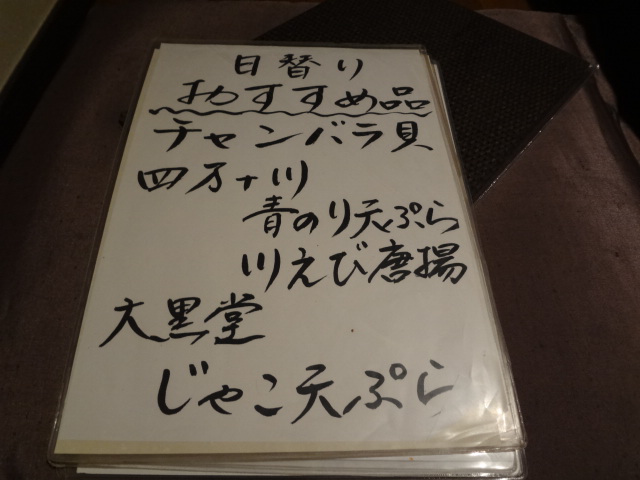 日替り
おすすめ品
チャンバラ貝
四万十川
青のり天ぷら
川えび唐揚
大黒堂
じゃこ天ぷら